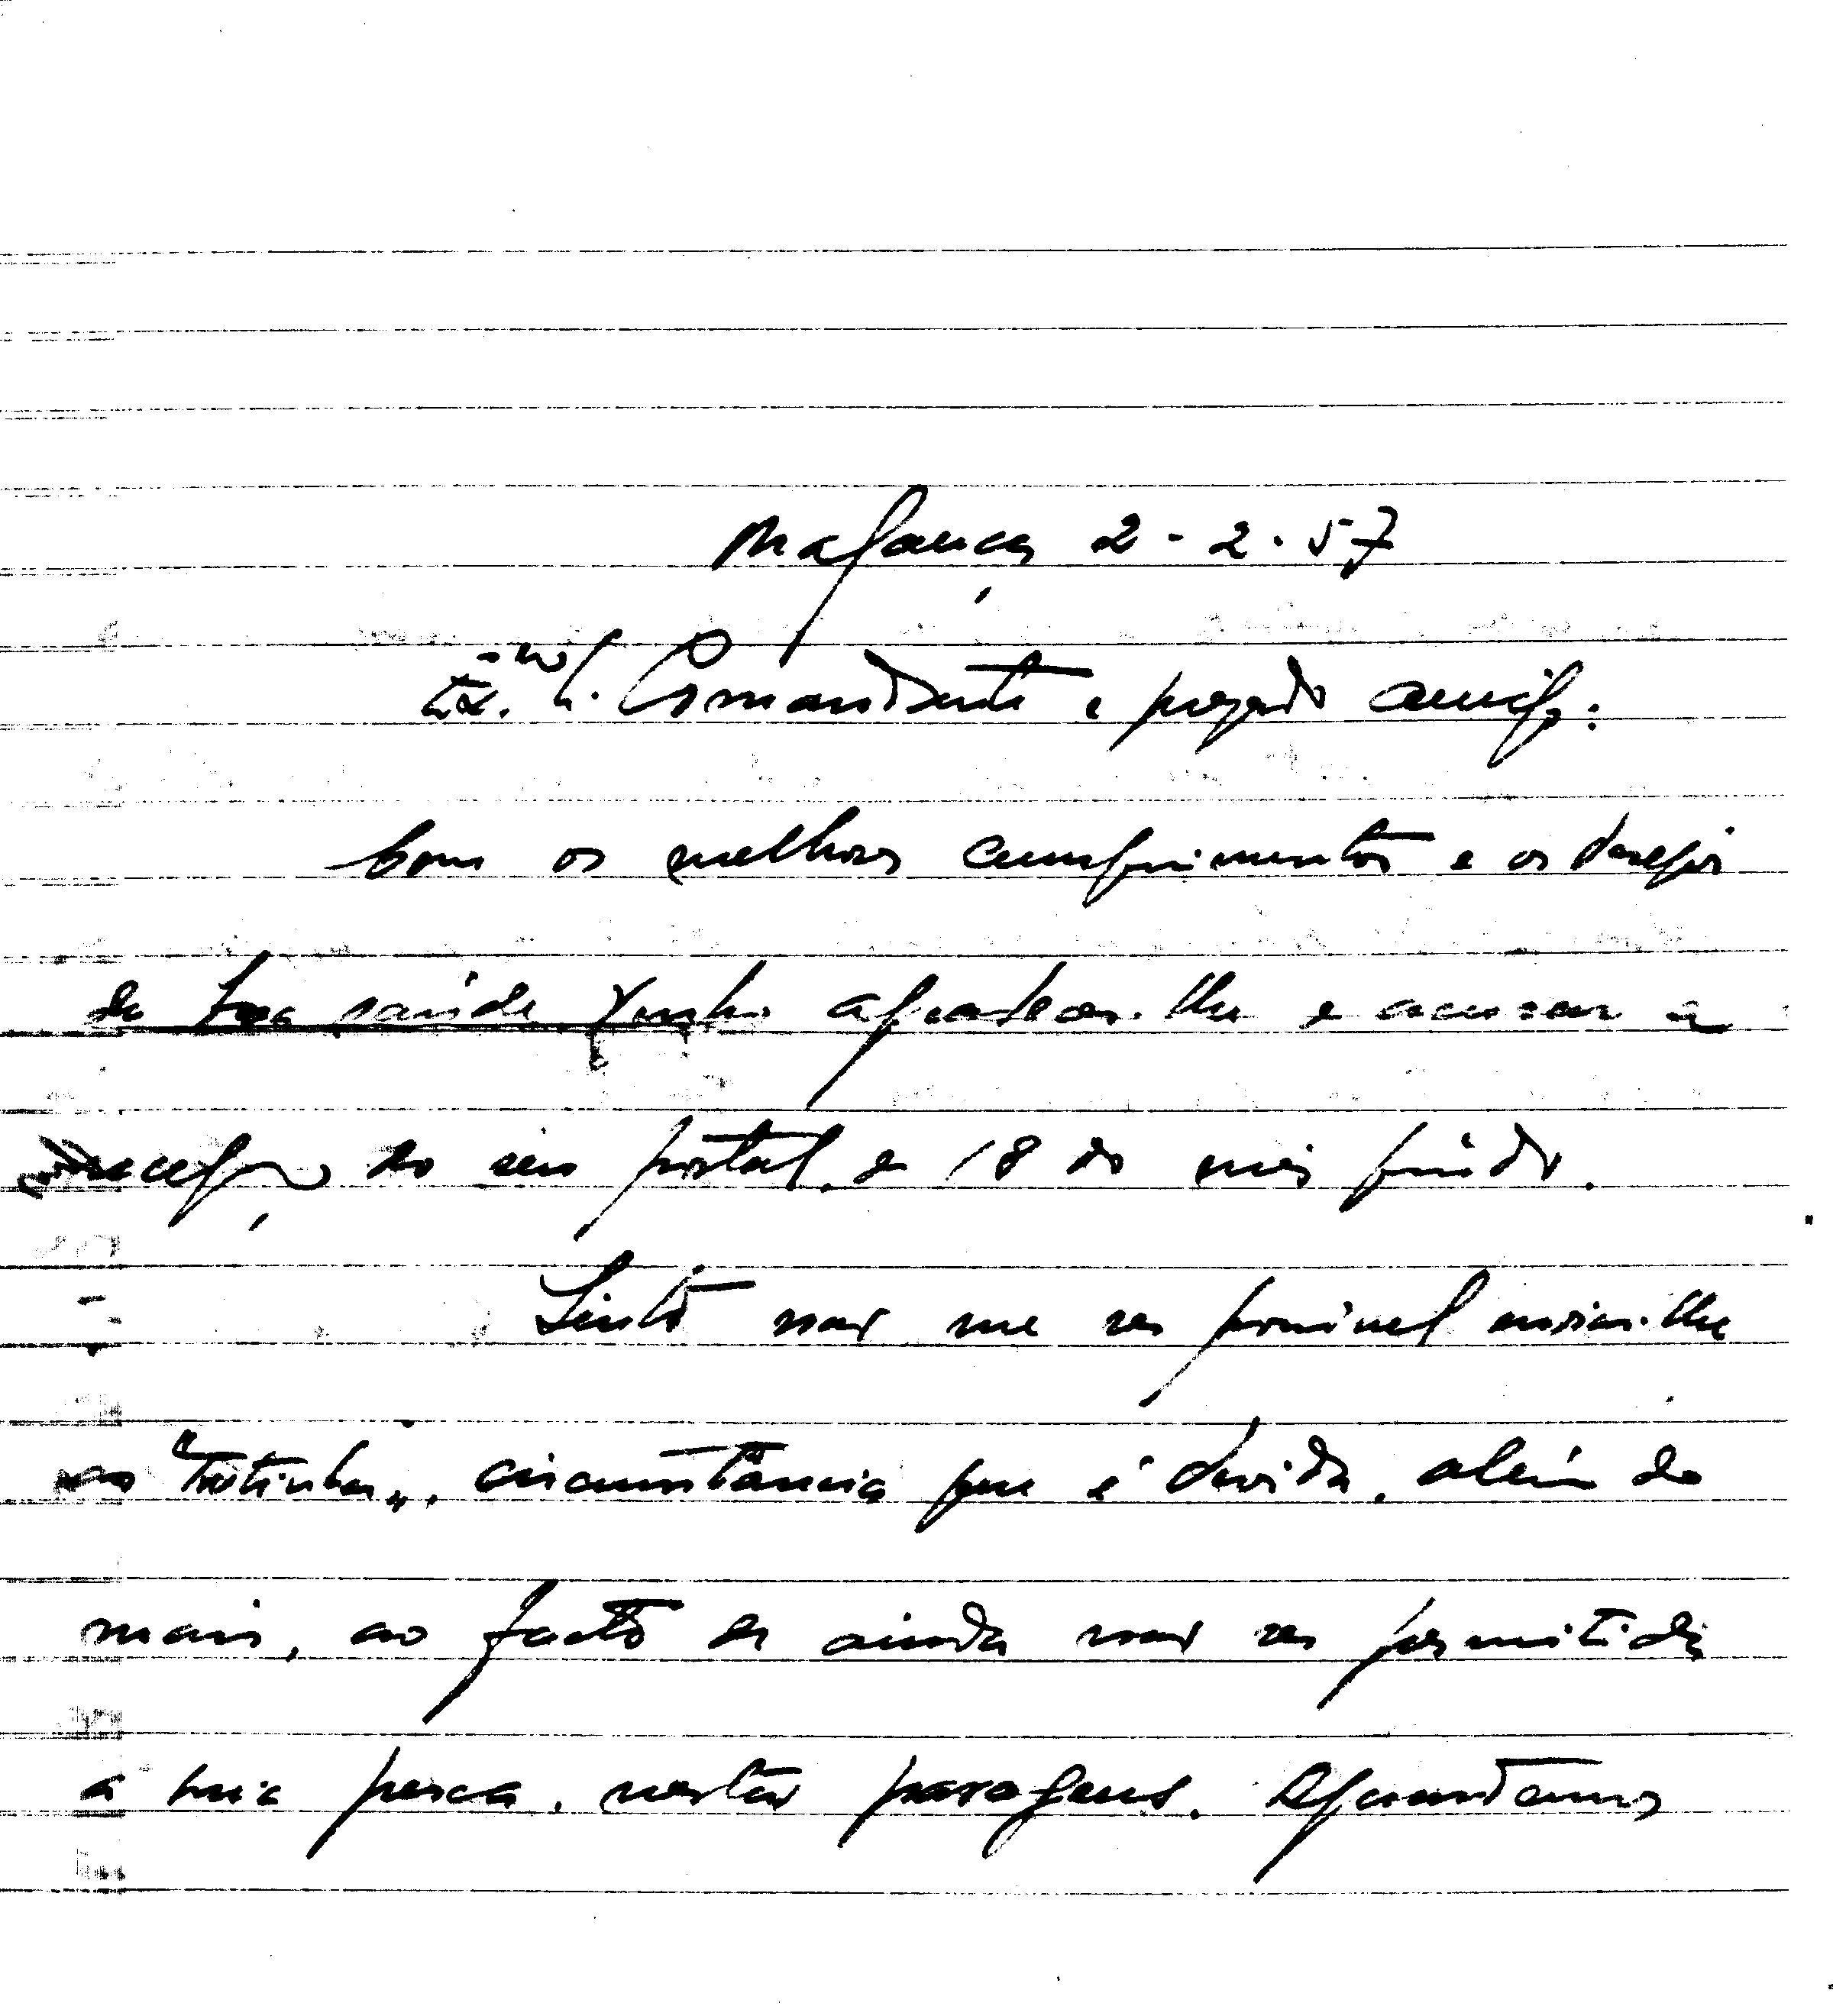 Malança 2-2-57
Ex.mo S. Comandante e prezado amigo:
Com os melhores cumprimentos e os desejos
de boa saúde, venho agradecer-lhe e acusar a
recepção do seu postal, de 18 do mês findo.
Sinto não me ser possível enviar-lhe
as "trutinhas", circunstância que é devida, além do
mais, ao facto de ainda não ser permitida
a sua pesca, nestas paragens. Aguardemos